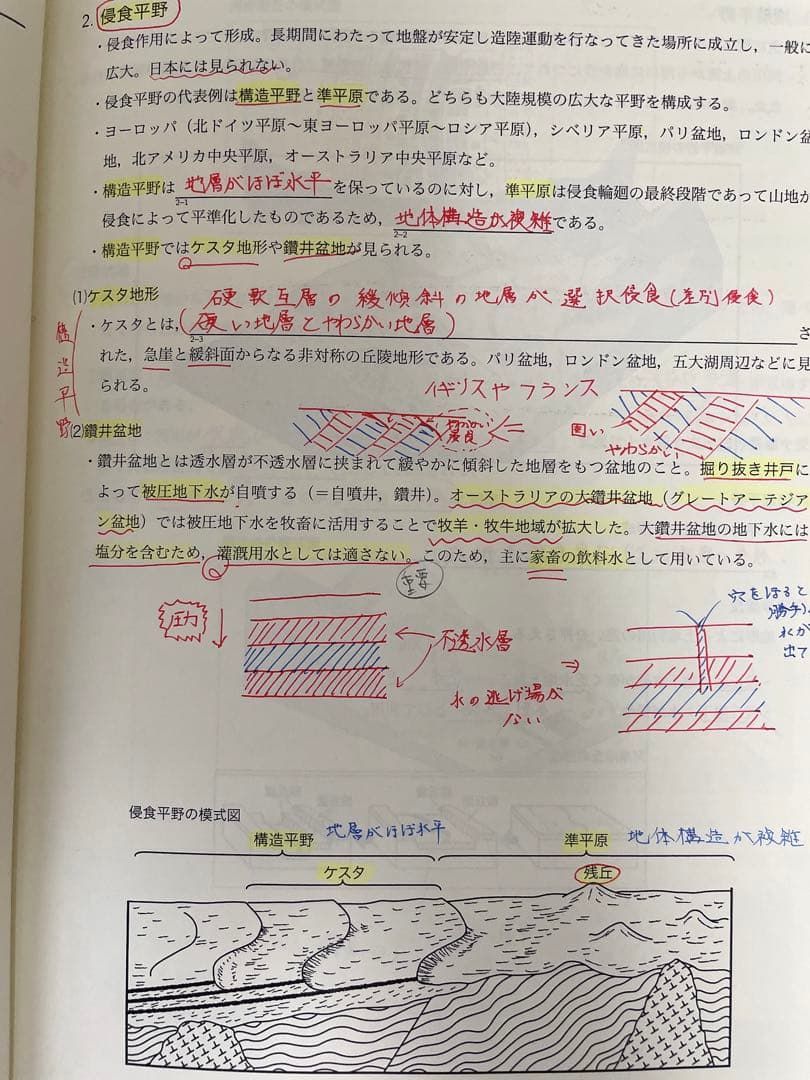 2. 侵食平野
・侵食作用によって形成。長期間にわたって地盤が安定し造陸運動を行なってきた場所に成立し，一般に
広大。日本には見られない。
・侵食平野の代表例は構造平野と準平原である。どちらも大陸規模の広大な平野を構成する。
・ヨーロッパ（北ドイツ平原～東ヨーロッパ平原～ロシア平原），シベリア平原，パリ盆地，ロンドン盆
地，北アメリカ中央平原，オーストラリア中央平原など。
・構造平野は 地層がほぼ水平 を保っているのに対し，準平原は侵食輪廻の最終段階であって山地が
2-1
侵食によって平準化したものであるため，地体構造が複雑である。
2-2
・構造平野ではケスタ地形や鑽井盆地が見られる。
構造平野
(1)ケスタ地形 硬軟互層の緩傾斜の地層が選択侵食(差別侵食)
・ケスタとは，(硬い地層とやわらかい地層) さ
2-3
れた，急崖と緩斜面からなる非対称の丘陵地形である。パリ盆地，ロンドン盆地，五大湖周辺などに見
られる。
イギリスやフランス
やわらかい
侵食
固い
やわらかい
(2)鑽井盆地
・鑽井盆地とは透水層が不透水層に挟まれて緩やかに傾斜した地層をもつ盆地のこと。掘り抜き井戸に
よって被圧地下水が自噴する（＝自噴井，鑽井）。オーストラリアの大鑽井盆地（グレートアーテジア
ン盆地）では被圧地下水を牧畜に活用することで牧羊・牧牛地域が拡大した。大鑽井盆地の地下水には
塩分を含むため，灌漑用水としては適さない。このため，主に家畜の飲料水として用いている。
重要
圧力
不透水層
水の逃げ場が
ない
⇒
穴をほると
勝手に
水が
出て
侵食平野の模式図
構造平野 地層がほぼ水平 準平原 地体構造が複雑
ケスタ 残丘